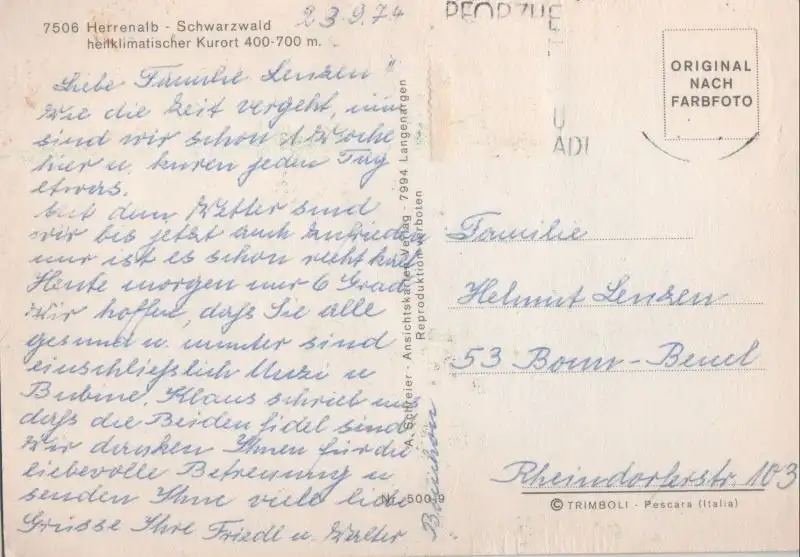 7506 Herrenalb - Schwarzwald
heilklimatischer Kurort 400-700 m.
23.9.74
Liebe Familie Lenzen!
Wie die Zeit vergeht, nun
sind wir schon 1 Woche
hier u. kuren jeden Tag
etwas.
Mit dem Wetter sind
wir bis jetzt auch zufrieden
nur ist es schon recht kalt
Heute morgen nur 6 Grad
Wir hoffen, daß Sie alle
gesund u. munter sind
einschließlich Muzi u
Bubine. Klaus schrieb uns
daß die Beiden fidel sind
Wir danken Ihnen für die
liebevolle Betreuung u
senden Ihnen viele liebe
Grüsse Ihre Friedl u. Walter
A. Schreier - Ansichtskarten-Verlag - 7994 Langenargen
Reproduktion verboten
Nr. 5009
ORIGINAL
NACH
FARBFOTO
Familie
Helmut Lenzen
53 Bonn-Beuel
Rheindorferstr. 103
© TRIMBOLI - Pescara (Italia)